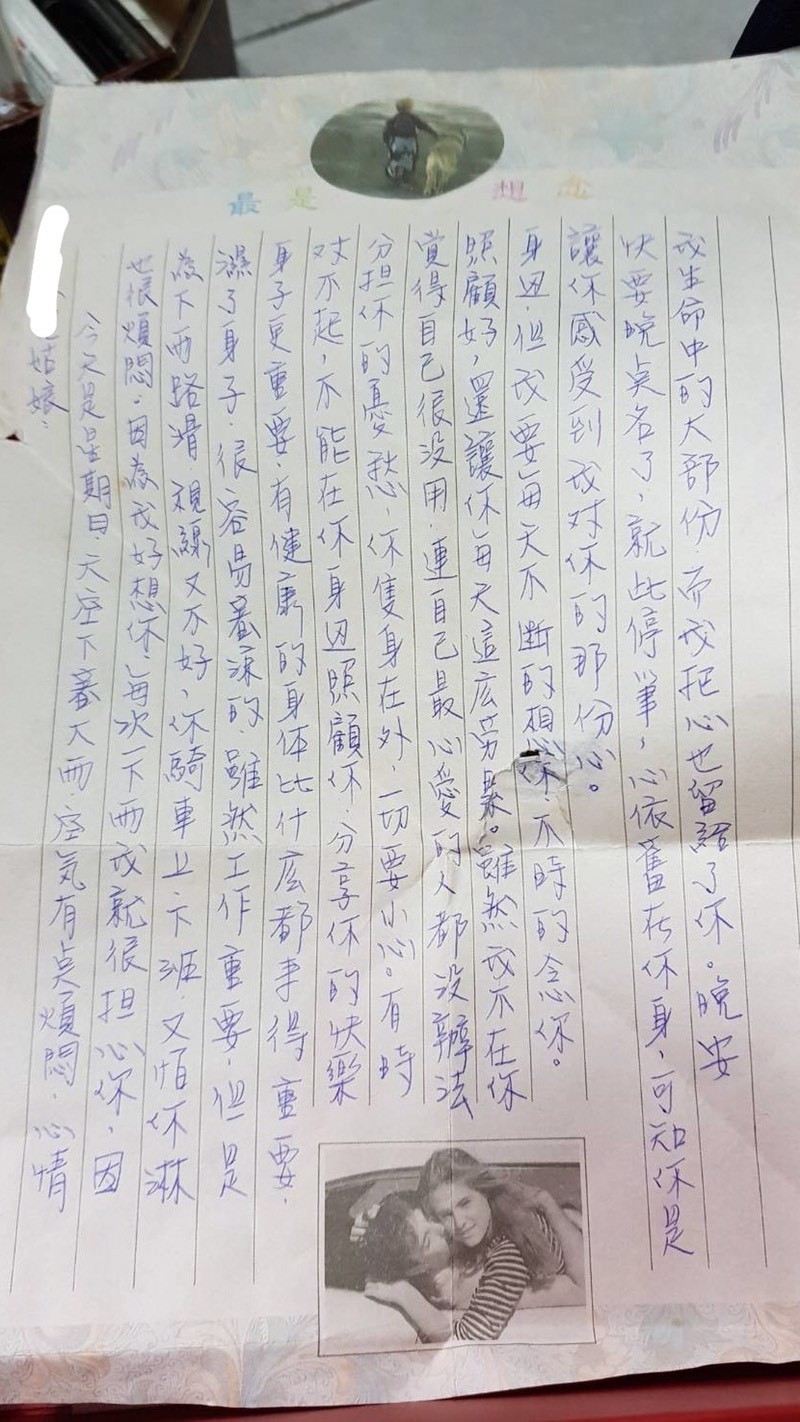 最是 想
姑娘:
今天是星期日,天空下著大雨,空氣有点煩悶,心情
也很煩悶,因為我好想你,每次一下雨我就很担心你,因
為下雨路滑,視線又不好,你騎車上下班,又怕你淋
濕了身子,很容易著涼的,雖然工作重要,但是
身子更重要,有健康的身体比什広都來得重要,
对不起,不能在你身边照顧你,分享你的快樂
分担你的憂愁,你隻身在外,一切要小心。有時
覺得自己很没用,連自己最心愛的人都没辦法
照顧好,還讓你每天這広勞累。雖然我不在你
身边,但我要每天不断的想你,不時的念你。
讓你感受到我对你的那份心。
快要晚点名了,就此停筆,心依舊在你身,可知你是
我生命中的大部份,而我把心也留給了你。晚安